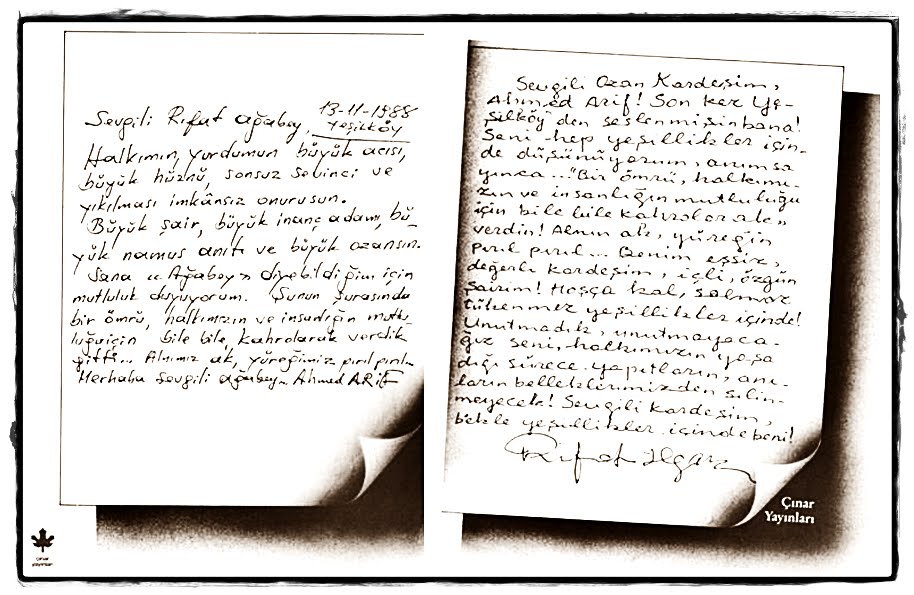 13-11-1988
Sevgili Rıfat ağabey, Yeşilköy
Halkımın, yurdumun büyük acısı,
büyük hüznü, sonsuz sevinci ve
yıkılması imkânsız onurusun.
Büyük şair, büyük inanç adamı, bü-
yük namus anıtı ve büyük ozansın.
Sana "Ağabey" diyebildiğim için
mutluluk duyuyorum. Şunun şurasında
bir ömrü, halkımızın ve insanlığın mutlu-
luğu için bile bile, kahrolarak verdik
gitti... Alnımız ak, yüreğimiz pırıl pırıl..
Merhaba sevgili ağabey.. Ahmed ARİF
çınar
yayınları
Sevgili Ozan Kardeşim,
Ahmed Arif! Son kez Ye-
şilköy'den seslenmişin bana!
Seni hep yeşillikler için-
de düşünüyorum, anımsa
yınca... "Bir ömrü, halkımı-
zın ve insanlığın mutluluğu
için bile bile kahrolarak"
verdin! Alnın ak, yüreğin
pırıl pırıl... Benim eşsiz,
değerli kardeşim, içli, özgün
şairim! Hoşça kal, solmaz
tükenmez yeşillikler içinde!
Unutmadık, unutmayaca-
ğız seni, halkımızın yaşa
dığı sürece yapıtların, anı-
ların belleklerimizden silin-
meyecek! Sevgili kardeşim,
bekle yeşillikler içinde beni!
Rıfat Ilgaz
Çınar
Yayınları